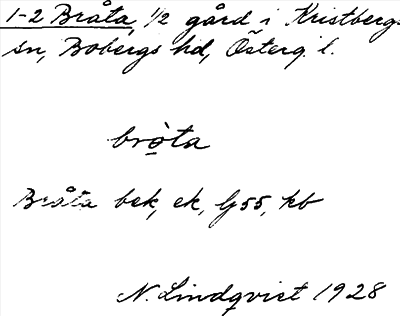 1-2 Bråta, 1/2 gård i Kristbergs
sn, Bobergs hd, Österg. l.
brò̲ta
Bråta bek, ek, lj 55, kb
N. Lindqvist 1928